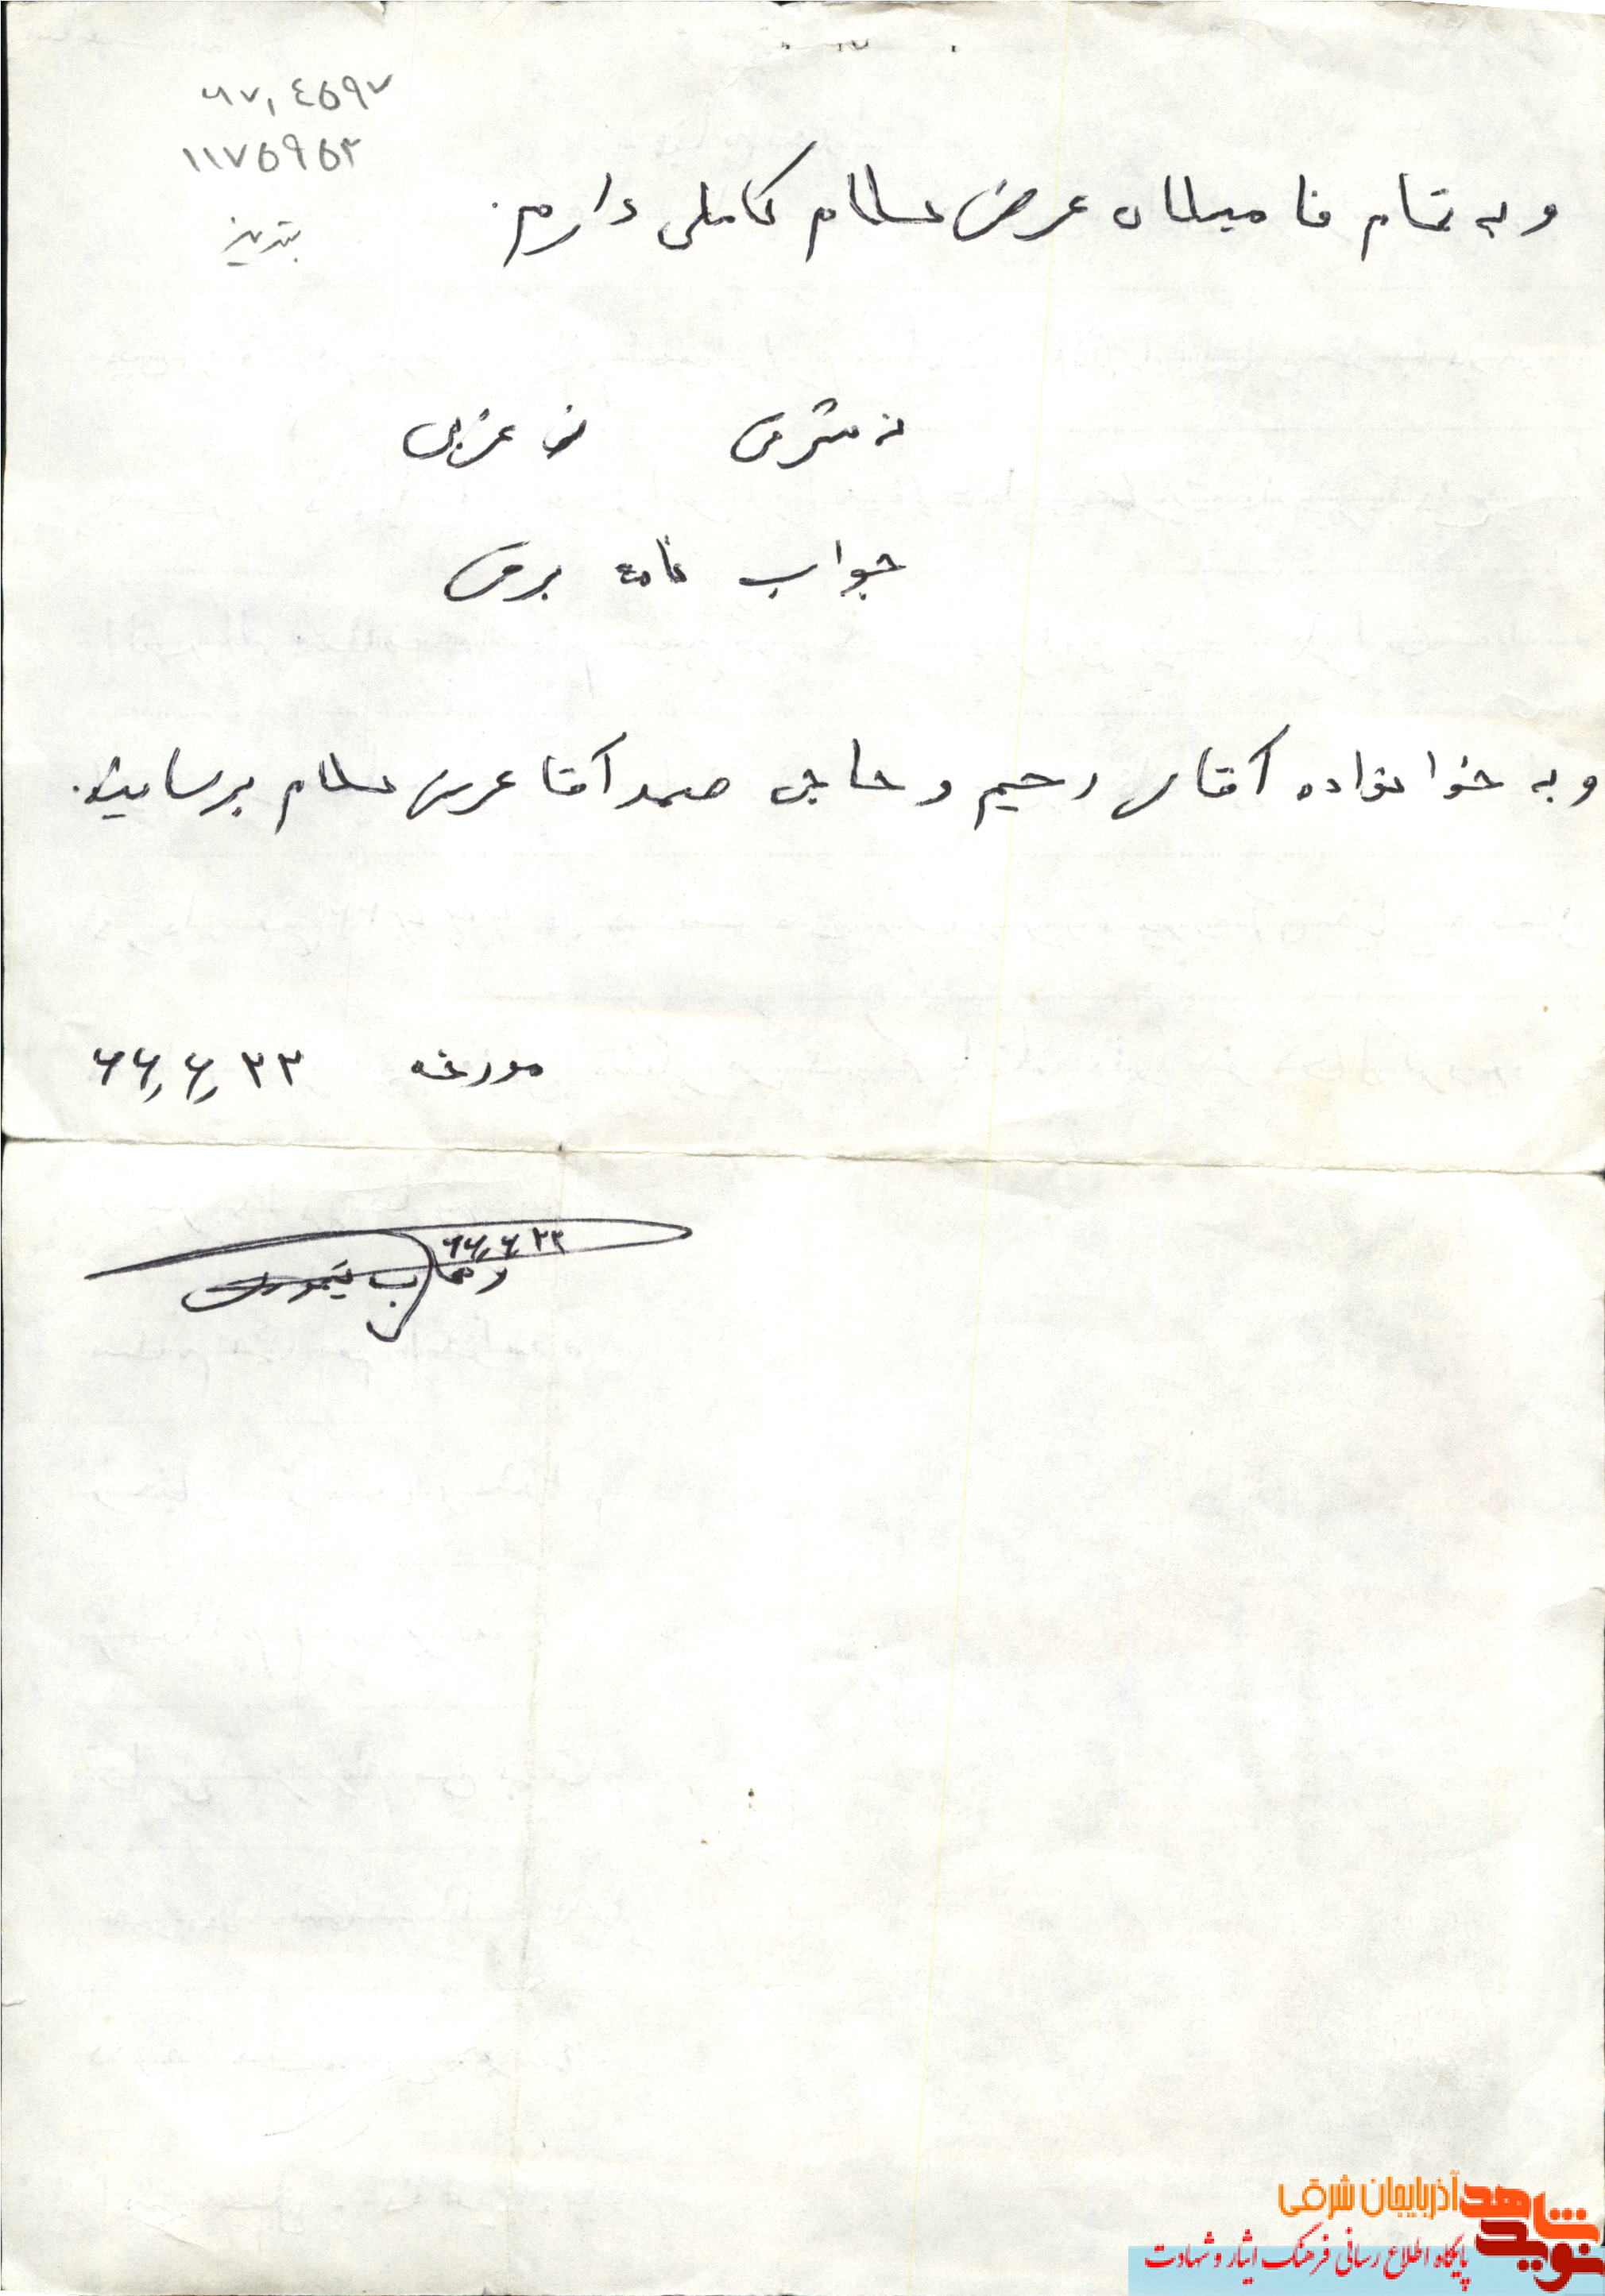 ۶۷,۴۵۹۷
۱۱۷۵۹۵۳
تبریز
و به تمام فامیلان عرض سلام کاملی دارم.
نه شرقی نه غربی
جواب نامه برقی
و به خوانواده آقای رحیم و حاجی صمد آقا عرض سلام برسانید.
مورخه ۶۶,۶,۲۳
۶۶,۶,۲۳
وهاب تیموری
آذربایجان شرقی
نوید شاهد
پایگاه اطلاع رسانی فرهنگ ایثار و شهادت